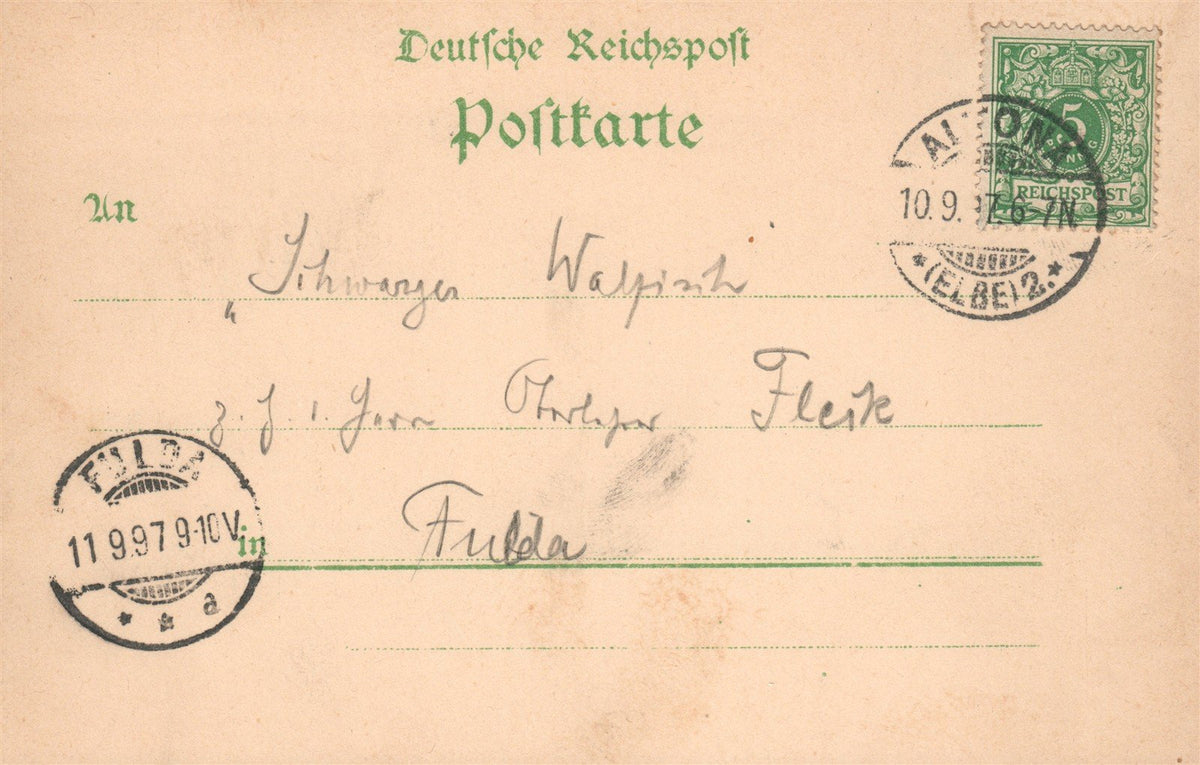 Deutsche Reichspost
Postkarte
5
PFENNIG
REICHSPOST
ALTONA
10.9.97.6-7N
* (ELBE) 2. *
An
"Schwarzer Walfisch
z. H. Herrn Fleck
in Fulda
FULDA
11.9.97 9-10V.
* * a